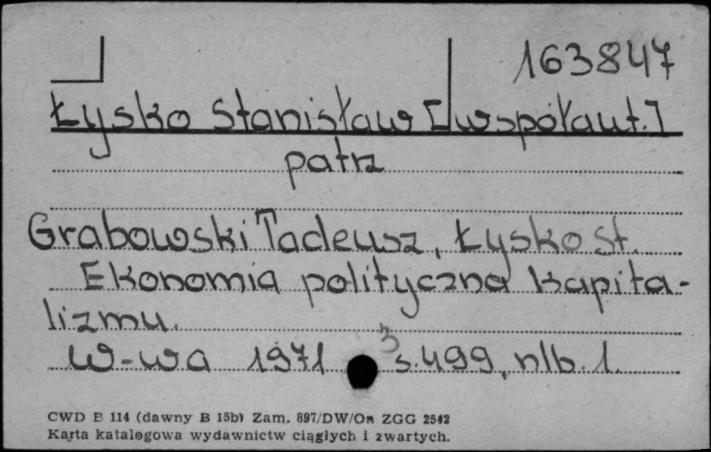 163847
Łysko Stanisław [współaut.]
patrz
Grabowski Tadeusz, Łysko St.
Ekonomia polityczna kapita-
lizmu.
W-wa 1971 s. 499, nlb. 1.
3
CWD E 114 (dawny B 15b) Zam. 897/DW/On ZGG 2542
Karta katalogowa wydawnictw ciągłych i zwartych.